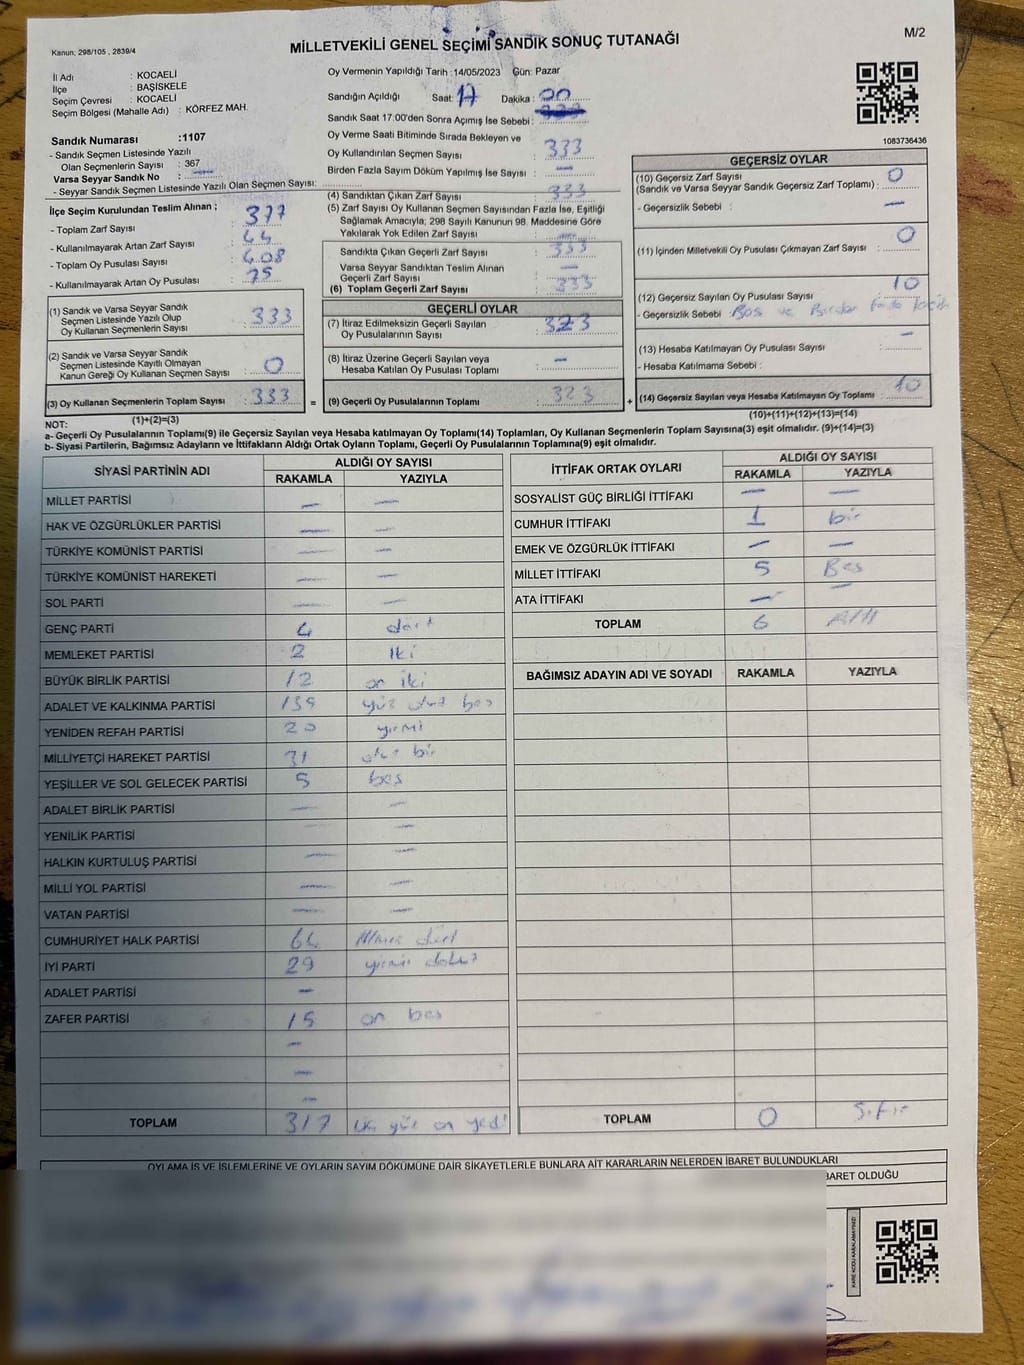 Kanun: 298/105 , 2839/4
MİLLETVEKİLİ GENEL SEÇİMİ SANDIK SONUÇ TUTANAĞI
M/2
İl Adı : KOCAELİ
İlçe : BAŞİSKELE
Seçim Çevresi : KOCAELİ
Seçim Bölgesi (Mahalle Adı) : KÖRFEZ MAH.
Sandık Numarası :1107
- Sandık Seçmen Listesinde Yazılı
Olan Seçmenlerin Sayısı : 367
Varsa Seyyar Sandık No : —
- Seyyar Sandık Seçmen Listesinde Yazılı Olan Seçmen Sayısı:
Oy Vermenin Yapıldığı Tarih :14/05/2023 Gün: Pazar
Sandığın Açıldığı Saat: 17 Dakika : 00
Sandık Saat 17:00'den Sonra Açılmış İse Sebebi :
Oy Verme Saati Bitiminde Sırada Bekleyen ve
Oy Kullandırılan Seçmen Sayısı : 333
Birden Fazla Sayım Döküm Yapılmış İse Sayısı : —
1083736436
İlçe Seçim Kurulundan Teslim Alınan ;
- Toplam Zarf Sayısı : 377
- Kullanılmayarak Artan Zarf Sayısı : 44
- Toplam Oy Pusulası Sayısı : 408
- Kullanılmayarak Artan Oy Pusulası : 75
(1) Sandık ve Varsa Seyyar Sandık
Seçmen Listesinde Yazılı Olup
Oy Kullanan Seçmenlerin Sayısı : 333
(2) Sandık ve Varsa Seyyar Sandık
Seçmen Listesinde Kayıtlı Olmayan
Kanun Gereği Oy Kullanan Seçmen Sayısı : 0
(3) Oy Kullanan Seçmenlerin Toplam Sayısı : 333
(1)+(2)=(3)
(4) Sandıktan Çıkan Zarf Sayısı : 333
(5) Zarf Sayısı Oy Kullanan Seçmen Sayısından Fazla İse, Eşitliği
Sağlamak Amacıyla; 298 Sayılı Kanunun 98. Maddesine Göre
Yakılarak Yok Edilen Zarf Sayısı : —
Sandıkta Çıkan Geçerli Zarf Sayısı : 333
Varsa Seyyar Sandıktan Teslim Alınan
Geçerli Zarf Sayısı : —
(6) Toplam Geçerli Zarf Sayısı : 333
GEÇERLİ OYLAR
(7) İtiraz Edilmeksizin Geçerli Sayılan
Oy Pusulalarının Sayısı : 323
(8) İtiraz Üzerine Geçerli Sayılan veya
Hesaba Katılan Oy Pusulası Toplamı : —
= (9) Geçerli Oy Pusulalarının Toplamı : 323
GEÇERSİZ OYLAR
(10) Geçersiz Zarf Sayısı
(Sandık ve Varsa Seyyar Sandık Geçersiz Zarf Toplamı) : 0
- Geçersizlik Sebebi : —
(11) İçinden Milletvekili Oy Pusulası Çıkmayan Zarf Sayısı : 0
(12) Geçersiz Sayılan Oy Pusulası Sayısı : 10
- Geçersizlik Sebebi : Boş ve Birden fazla
(13) Hesaba Katılmayan Oy Pusulası Sayısı : —
- Hesaba Katılmama Sebebi :
+ (14) Geçersiz Sayılan veya Hesaba Katılmayan Oy Toplamı : 10
(10)+(11)+(12)+(13)=(14)
NOT:
a- Geçerli Oy Pusulalarının Toplamı(9) ile Geçersiz Sayılan veya Hesaba katılmayan Oy Toplamı(14) Toplamları, Oy Kullanan Seçmenlerin Toplam Sayısına(3) eşit olmalıdır. (9)+(14)=(3)
b- Siyasi Partilerin, Bağımsız Adayların ve İttifakların Aldığı Ortak Oyların Toplamı, Geçerli Oy Pusulalarının Toplamına(9) eşit olmalıdır.
SİYASİ PARTİNİN ADI ALDIĞI OY SAYISI
RAKAMLA YAZIYLA
MİLLET PARTİSİ — —
HAK VE ÖZGÜRLÜKLER PARTİSİ — —
TÜRKİYE KOMÜNİST PARTİSİ — —
TÜRKİYE KOMÜNİST HAREKETİ — —
SOL PARTİ — —
GENÇ PARTİ 4 dört
MEMLEKET PARTİSİ 2 iki
BÜYÜK BİRLİK PARTİSİ 12 on iki
ADALET VE KALKINMA PARTİSİ 135 yüz otuz beş
YENİDEN REFAH PARTİSİ 20 yirmi
MİLLİYETÇİ HAREKET PARTİSİ 31 otuz bir
YEŞİLLER VE SOL GELECEK PARTİSİ 5 beş
ADALET BİRLİK PARTİSİ — —
YENİLİK PARTİSİ — —
HALKIN KURTULUŞ PARTİSİ — —
MİLLİ YOL PARTİSİ — —
VATAN PARTİSİ — —
CUMHURİYET HALK PARTİSİ 64 Altmış dört
İYİ PARTİ 29 yirmi dokuz
ADALET PARTİSİ —
ZAFER PARTİSİ 15 on beş
—
—
—
TOPLAM 317 üç yüz on yedi
İTTİFAK ORTAK OYLARI ALDIĞI OY SAYISI
RAKAMLA YAZIYLA
SOSYALİST GÜÇ BİRLİĞİ İTTİFAKI — —
CUMHUR İTTİFAKI 1 bir
EMEK VE ÖZGÜRLÜK İTTİFAKI — —
MİLLET İTTİFAKI 5 Beş
ATA İTTİFAKI — —
TOPLAM 6 Altı
BAĞIMSIZ ADAYIN ADI VE SOYADI RAKAMLA YAZIYLA
TOPLAM 0 Sıfır
OYLAMA İŞ VE İŞLEMLERİNE VE OYLARIN SAYIM DÖKÜMÜNE DAİR ŞİKAYETLERLE BUNLARA AİT KARARLARIN NELERDEN İBARET BULUNDUKLARI
BARET OLDUĞU